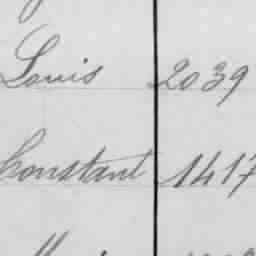 Louis 2039
Constant 1417